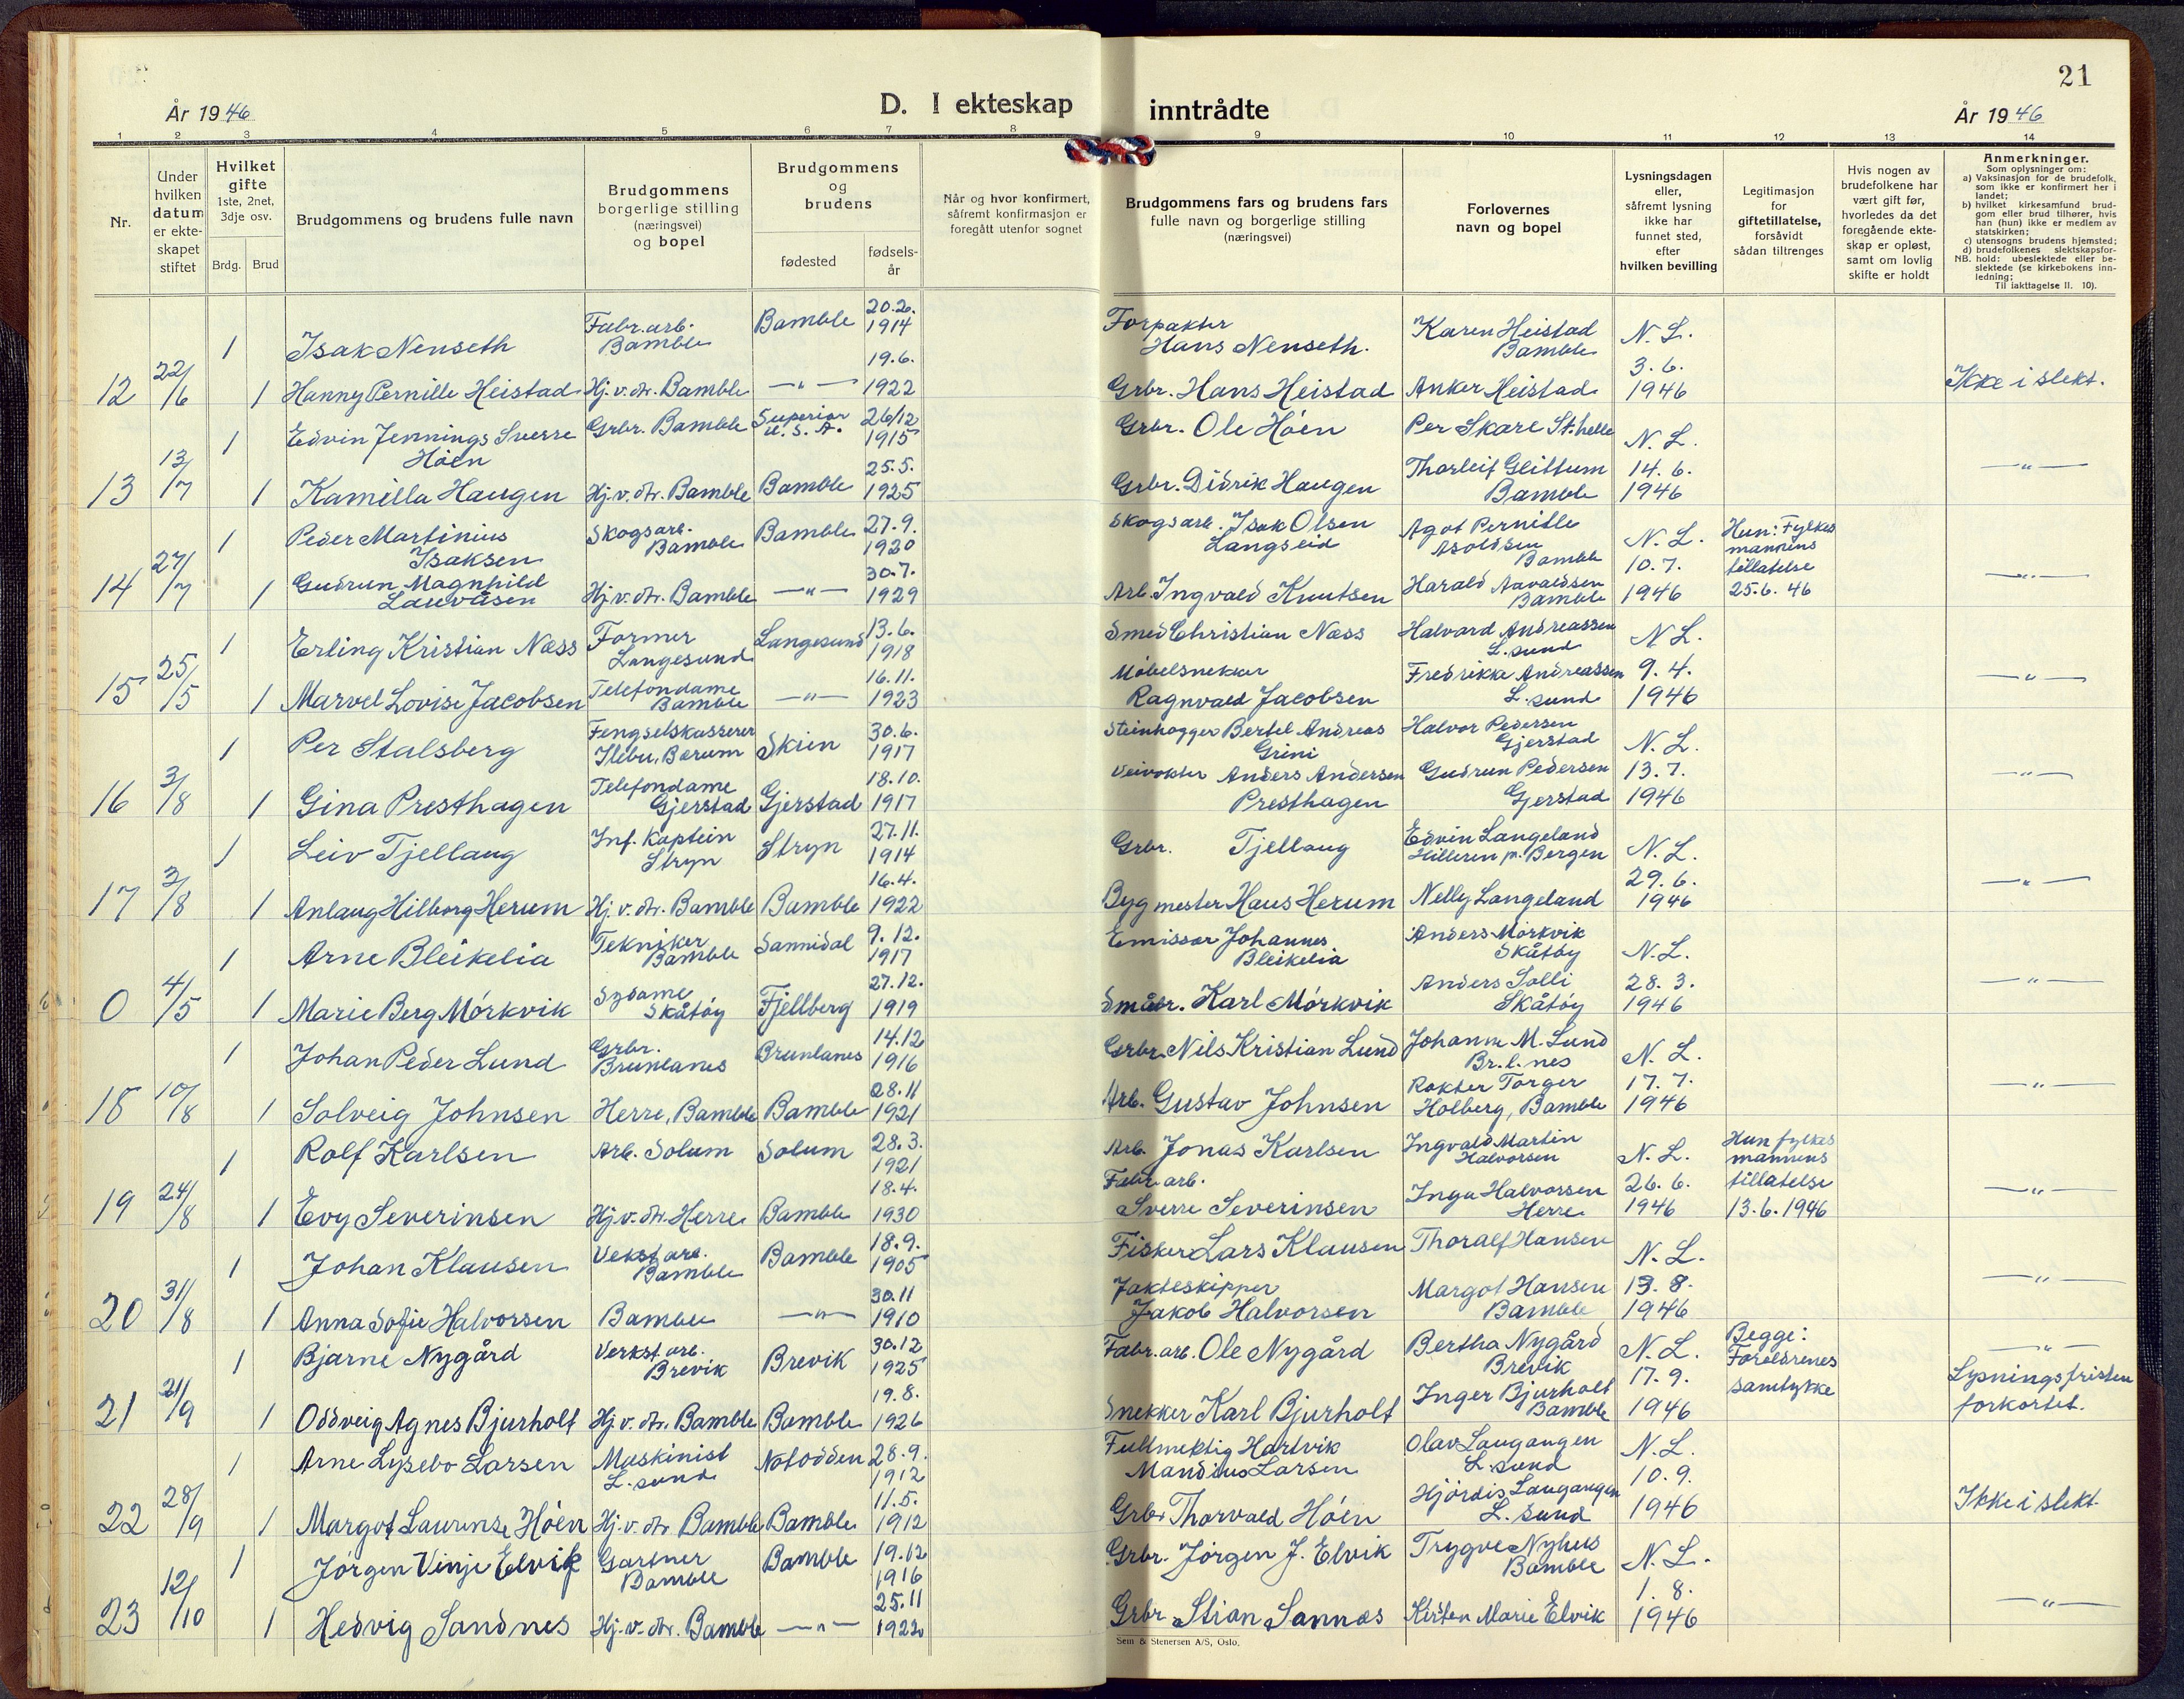 21
År 1946
D. I ekteskap inntrådte
År 1946
1 2 3 4 5 6 7 8 9 10 11 12 13 14
Nr.
Under
hvilken
datum
er ekte-
skapet
stiftet
Hvilket
gifte
1ste, 2net,
3dje osv.
Brdg. Brud
Brudgommens og brudens fulle navn
Brudgommens
borgerlige stilling
(næringsvei)
og bopel
Brudgommens
og
brudens
fødested
fødsels-
år
Når og hvor konfirmert,
såfremt konfirmasjon er
foregått utenfor sognet
Brudgommens fars og brudens fars
fulle navn og borgerlige stilling
(næringsvei)
Forlovernes
navn og bopel
Lysningsdagen
eller,
såfremt lysning
ikke har
funnet sted,
efter
hvilken bevilling
Legitimasjon
for
giftetillatelse,
forsåvidt
sådan tiltrenges
Hvis nogen av
brudefolkene har
vært gift før,
hvorledes da det
foregående ekte-
skap er opløst,
samt om lovlig
skifte er holdt
Anmerkninger.
Som oplysninger om:
a) Vaksinasjon for de brudefolk,
som ikke er konfirmert her i
landet;
b) hvilket kirkesamfund brud-
gom eller brud tilhører, hvis
han (hun) ikke er medlem av
statskirken;
c) utensogns brudens hjemsted;
d) brudefolkenes slektskapsfor-
NB. hold: ubeslektede eller be-
slektede (se kirkebokens inn-
ledning;
Til iakttagelse II. 10).
1 Isak Nenseth Fabr.arb. Bamble Bamble 20.2. 1914 Forpakter Hans Nenseth. Karen Heistad Bamble N. L.
12 22/6 1 Hanny Pernille Heistad Hj.v.dr. Bamble —"— 19.6. 1922 Grbr. Hans Heistad Anker Heistad 3.6. 1946 Ikke i slekt.
1 Edvin Jennings Sverre Höen Grbr. Bamble Superior U.S.A. 26/12 1915 Grbr. Ole Höen Per Skare St.helle N. L.
13 13/7 1 Kamilla Haugen Hj.v.dr. Bamble Bamble 25.5. 1925 Grbr. Didrik Haugen Thorleif Glittum Bamble 14.6. 1946 —"—
1 Peder Martinius Isaksen Skogsarb. Bamble Bamble 27.9. 1920 Skogsarb. Isak Olsen Langseid Agot Pernille Asoldsen Bamble N. L. Hun: Fylkes
14 27/7 1 Gudrun Magnhild Lauvåsen Hj.v.dr. Bamble —"— 30.7. 1929 Arb. Ingvald Knutsen Harald Aavaldsen Bamble 10.7. 1946 mannens tillatelse 25.6.46 —"—
1 Erling Kristian Næss Former Langesund Langesund 13.6. 1918 Smed Christian Næss Halvard Andreassen L.sund N L.
15 25/5 1 Marvel Lovise Jacobsen Telefondame Bamble —"— 16.11. 1923 Møbelsnekker Ragnvald Jacobsen Fredrikke Andreassen L.sund 9.4. 1946 —"—
1 Per Stalsberg Fengselskasserer Ilebu, Bærum Skien 30.6. 1917 Steinhogger Bertel Andreas Grini Halvor Pedersen Gjerstad N. L.
16 3/8 1 Gina Presthagen Telefondame Gjerstad Gjerstad 18.10. 1917 Veivokter Anders Andersen Presthagen Gudrun Pedersen Gjerstad 13.7. 1946 —"—
1 Leiv Tjellaug Inf. Kaptein Stryn Stryn 27.11. 1914 Grbr. Tjellaug Edvin Langeland Hilleren p. Bergen N. L.
17 3/8 1 Anlaug Hilborg Herum Hj.v.dr. Bamble Bamble 16.4. 1922 Bygmester Hans Herum Nelly Langeland 29.6. 1946 —"—
1 Arne Bleikelia Tekniker Bamble Sannidal 9.12. 1917 Emissær Johannes Bleikelia Anders Mörkvik Skåtöy N.L.
0 4/5 1 Marie Berg Mörkvik Sydame Skåtöy Fjellberg 27.12. 1919 Småbr. Karl Mörkvik Anders Solli Skåtöy 28.3. 1946 —"—
1 Johan Peder Lund Grbr. Brunlanes Brunlanes 14.12 1916 Grbr. Nils Kristian Lund Johanne M. Lund Br.l.nes N. L.
18 10/8 1 Solveig Johnsen Herre, Bamble Bamble 28.11 1921 Arb. Gustav Johnsen Røkter Torger Holberg, Bamble 17.7. 1946 —"—
1 Rolf Karlsen Arb. Solum Solum 28.3. 1921 Arb. Jonas Karlsen Ingvald Martin Halvorsen N. L. Hun fylkes mannens
19 24/8 1 Evy Severinsen Hj.v.dr. Herre Bamble 18.4. 1930 Fabr. arb. Sverre Severinsen Inga Halvorsen Herre 26.6. 1946 tillatelse 13.6.1946 —"—
1 Johan Klausen Vekst.arb. Bamble Bamble 18.9. 1905 Fisker Lars Klausen Thoralf Hansen N. L.
20 31/8 1 Anna Sofie Halvorsen Bamble —"— 30.11 1910 Jakteskipper Jakob Halvorsen Margot Hansen Bamble 13.8. 1946 —"—
1 Bjarne Nygård Verkst.arb. Brevik Brevik 30.12 1925 Fabr.arb. Ole Nygård Bertha Nygård Brevik N. L. Begge: Foreldrenes —"—
21 21/9 1 Oddveig Agnes Bjurholt Hj.v.dr. Bamble Bamble 19.8. 1926 Snekker Karl Bjurholt Inger Bjurholt Bamble 17.9. 1946 samtykke Lysningsfristen forkortet.
1 Arne Lysebo Larsen Maskinist L.sund Notodden 28.9. 1912 Fullmektig Hartvik Mandius Larsen Olav Laugangen L.sund N. L.
22 28/9 1 Margot Laurense Höen Hj.v.dr. Bamble Bamble 11.5. 1912 Grbr. Thorvald Höen Hjördis Laugangen L.sund 10.9. 1946 Ikke i slekt.
1 Jörgen Vinje Elvik Gartner Bamble Bamble 19.12 1916 Grbr. Jörgen J. Elvik Trygve Nyhus Bamble N. L.
23 12/10 1 Hedvig Sandnes Hj.v.dr. Bamble —"— 25.11 1922 Grbr Stian Sannæs Kirsten Marie Elvik 1.8. 1946 —"—
Sem & Stenersen A/S, Oslo.